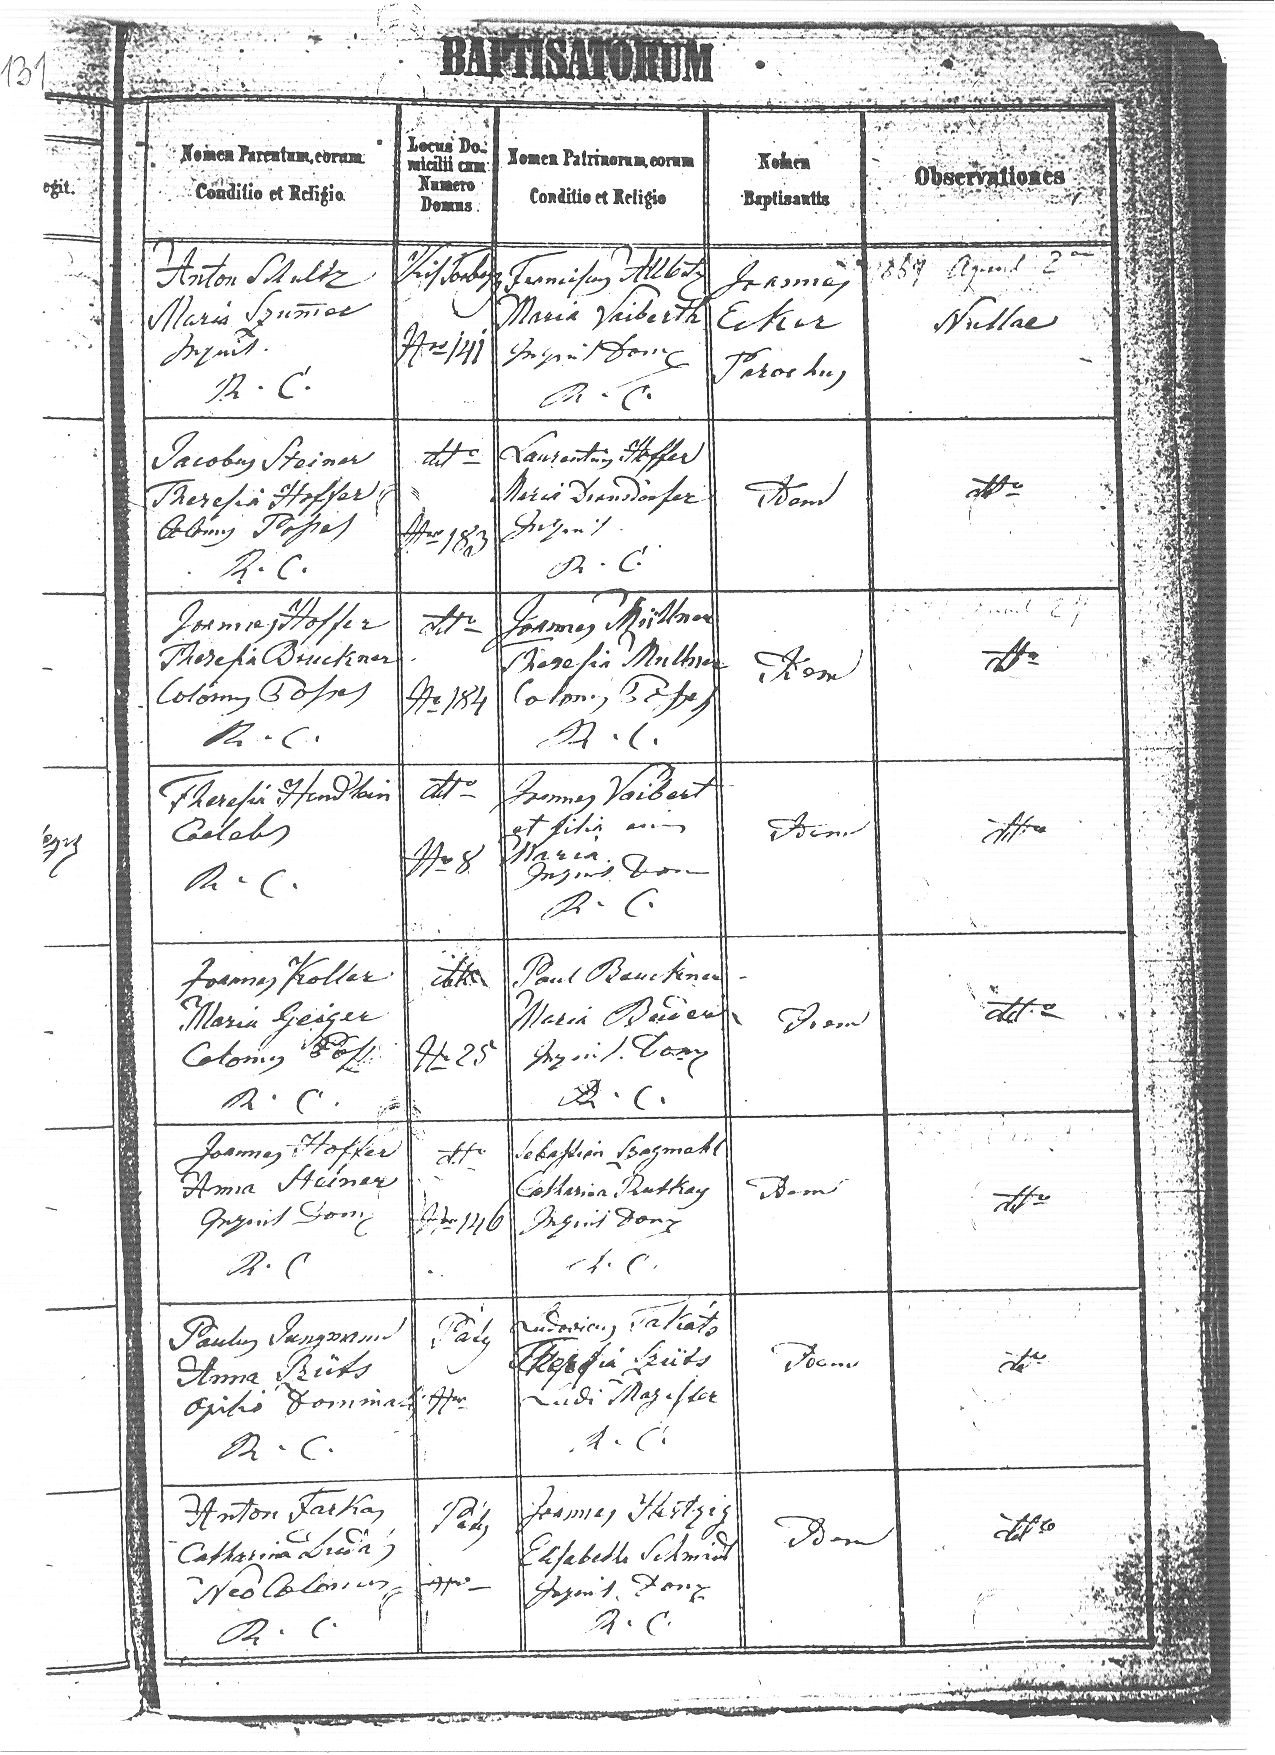 131
BAPTISATORUM
egit.
Nomen Parentum, eorum
Conditio et Religio
Locus Do-
micilii cum
Numero
Domus.
Nomen Patrinorum, eorum
Conditio et Religio
Nomen
Baptisantis
Observationes
Anton Schultz
Maria
Inquil.
R. C.
Nro 141
Franciscus
Maria Vaiberth
Inquil Dom
R. C.
Joannes
Ecker
Parochus
Nullae
Jacobus Steiner
Theresia Hoffer
Colonus Posses
R. C.
ditto
Nro 183
Laurentius Hoffer
Maria
Inquil.
R. C.
Idem
ditto
Joannes Hoffer
Theresia Bruckner
Colonus Posses
R. C.
ditto
No 184
Joannes Müllner
Theresia
Colonus Posses
R. C.
Idem
ditto
Theresia Hendlein
Caelebs
R. C.
ditto
Nro 8
Joannes Vaibert
et filia eius
Maria
Inquil. Dom
R. C.
Idem
ditto
Joannes Koller
Maria Geiger
Colonus Poss
R. C.
ditto
No 25
Paul Bruckner
Maria
Inquil. Dom
R. C.
Idem
ditto
Joannes Hoffer
Anna Steiner
Inquil Dom
R. C
ditto
Nro 146
Sebastian
Catharina Rutkay
Inquil Dom
R. C.
Idem
ditto
Paulus Jungmann
Anna Szüts
Opilio Dominalis
R. C.
Pády
Nro
Ludovicus Takáts
Theresia Szüts
Ludi Magister
R. C.
Idem
ditto
Anton Farkas
Catharina
Neo Colonus
R. C.
Pády
Nro
Joannes Hertzig
Elisabetha Schmidt
Inquil. Dom
R. C.
Idem
ditto